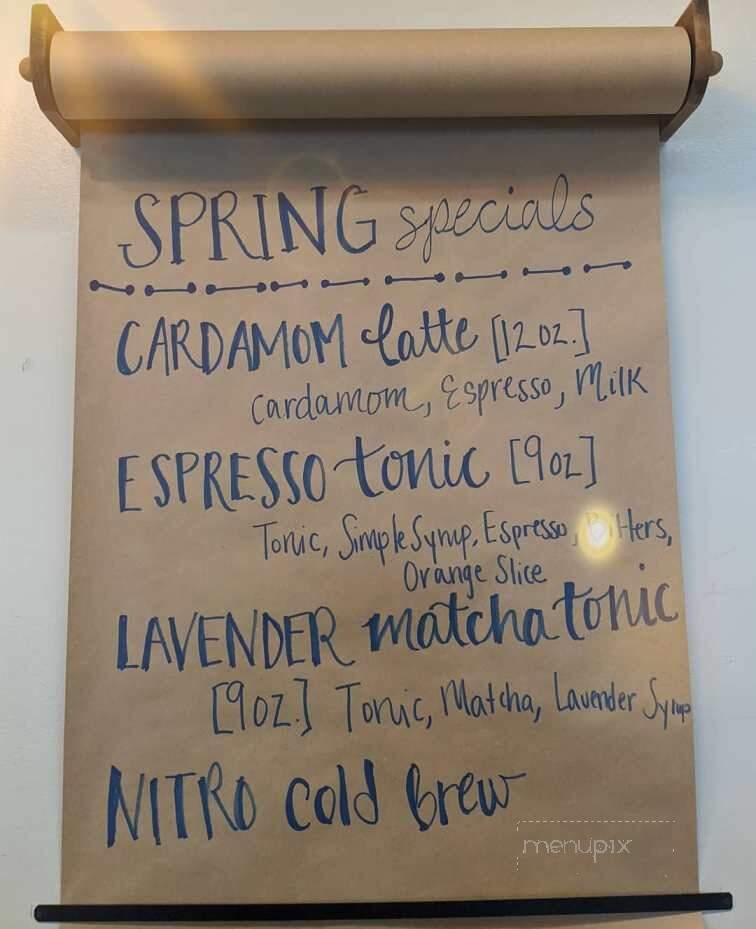 SPRING specials
CARDAMOM latte [12oz.]
Cardamom, Espresso, Milk
ESPRESSO tonic [9oz]
Tonic, Simple Syrup, Espresso, Bitters,
Orange Slice
LAVENDER matcha tonic
[9oz.] Tonic, Matcha, Lavender Syrup
NITRO cold brew
menupix